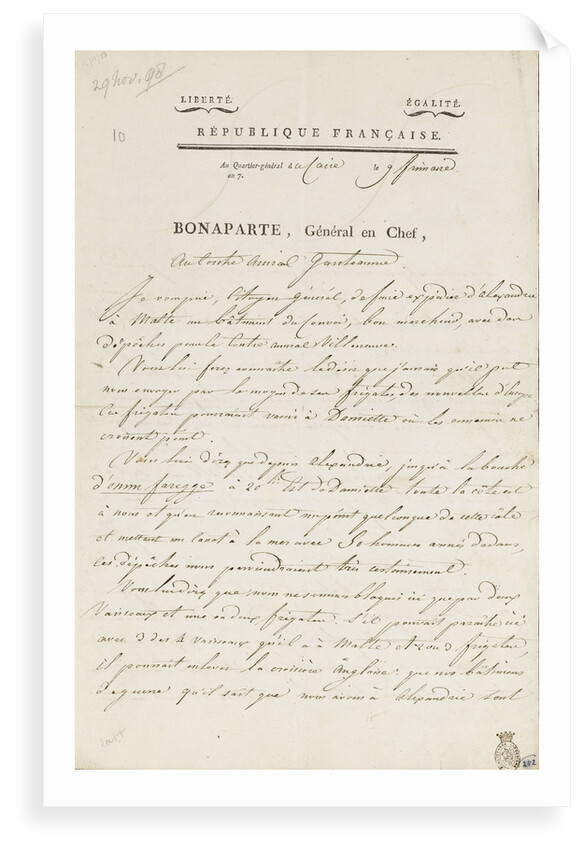 29 Nov. 98
10
LIBERTÉ. ÉGALITÉ.
RÉPUBLIQUE FRANÇAISE.
Au Quartier-général d u Caire le 9 frimaire
an 7.
BONAPARTE, Général en Chef,
Au Contre Amiral Ganteaume.
Je vous prie, Citoyen Général, de faire expédier d'Alexandrie
à Malte un bâtiment du Convoi, bon marcheur, avec des
dépêches pour le Contre amiral Villeneuve.
Vous lui ferez connaître le désir que j'aurais qu'il put
nous envoyer par le moyen de ses frégates, des nouvelles d'Europe
Ces frégates pourraient venir à Damiette où les ennemis ne
croisent point.
Vous lui direz que depuis Alexandrie, jusqu'à la bouche
d'omm faregge à 20 de Damiette toute la côte est
à nous et qu'en reconnaissant un point quelconque de cette côte
et mettant un canot à la mer avec 30 hommes armés dedans,
ces dépêches nous parviendraient très certainement.
Vous lui direz que nous ne sommes bloqués ici que par deux
Vaisseaux et une ou deux frégates. S'il pouvait paraître ici
avec 3 des 4 vaisseaux qu'il a à Malte et 2 ou 3 frégates,
il pourrait enlever la croisière Anglaise: que nos bâtimens
de guerre qu'il sait que nous avons à Alexandrie sont
202